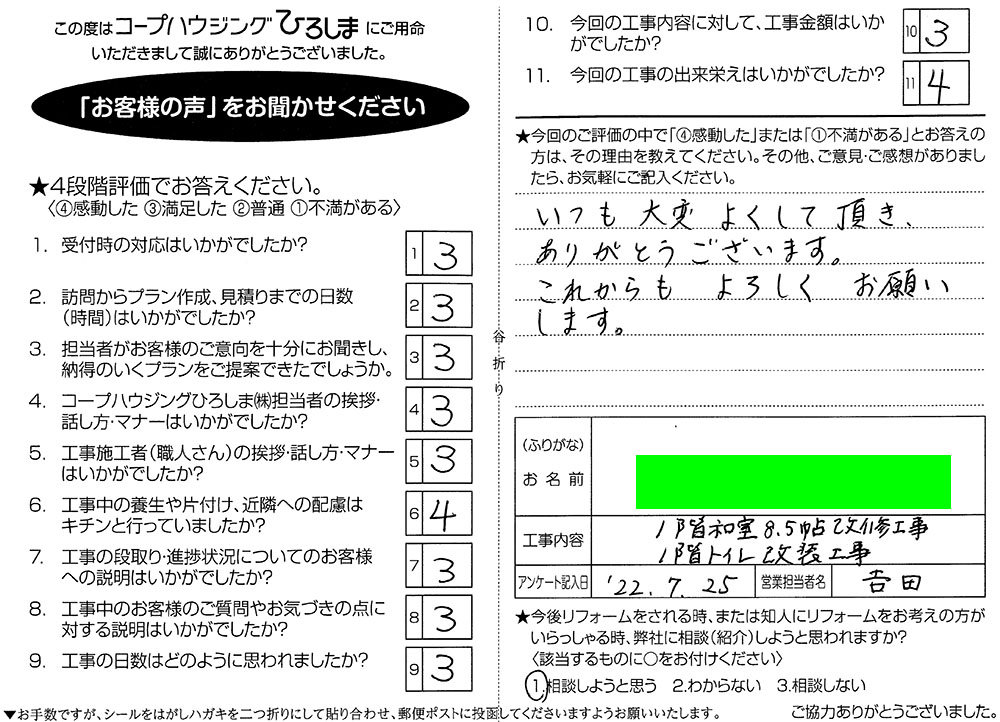 この度はコープハウジングひろしまにご用命
いただきまして誠にありがとうございました。
「お客様の声」をお聞かせください
★4段階評価でお答えください。
〈④感動した ③満足した ②普通 ①不満がある〉
1. 受付時の対応はいかがでしたか?
1 3
2. 訪問からプラン作成、見積りまでの日数
(時間)はいかがでしたか?
2 3
3. 担当者がお客様のご意向を十分にお聞きし、
納得のいくプランをご提案できたでしょうか。
3 3
4. コープハウジングひろしま㈱担当者の挨拶・
話し方・マナーはいかがでしたか?
4 3
5. 工事施工者(職人さん)の挨拶・話し方・マナー
はいかがでしたか?
5 3
6. 工事中の養生や片付け、近隣への配慮は
キチンと行っていましたか?
6 4
7. 工事の段取り・進捗状況についてのお客様
への説明はいかがでしたか?
7 3
8. 工事中のお客様のご質問やお気づきの点に
対する説明はいかがでしたか?
8 3
9. 工事の日数はどのように思われましたか?
9 3
谷折り
10. 今回の工事内容に対して、工事金額はいか
がでしたか?
10 3
11. 今回の工事の出来栄えはいかがでしたか?
11 4
★今回のご評価の中で「④感動した」または「①不満がある」とお答えの
方は、その理由を教えてください。その他、ご意見・ご感想がありまし
たら、お気軽にご記入ください。
いつも 大変 よくして 頂き、
ありがとうございます。
これからも よろしく お願い
します。
(ふりがな)
お名前
工事内容
1階和室8.5帖改修工事
1階トイレ改装工事
アンケート記入日 '22.7.25 営業担当者名 吉田
★今後リフォームをされる時、または知人にリフォームをお考えの方が
いらっしゃる時、弊社に相談(紹介)しようと思われますか?
〈該当するものに○をお付けください〉
1.相談しようと思う 2.わからない 3.相談しない
▼お手数ですが、シールをはがしハガキを二つ折りにして貼り合わせ、郵便ポストに投函してくださいますようお願いいたします。
ご協力ありがとうございました。